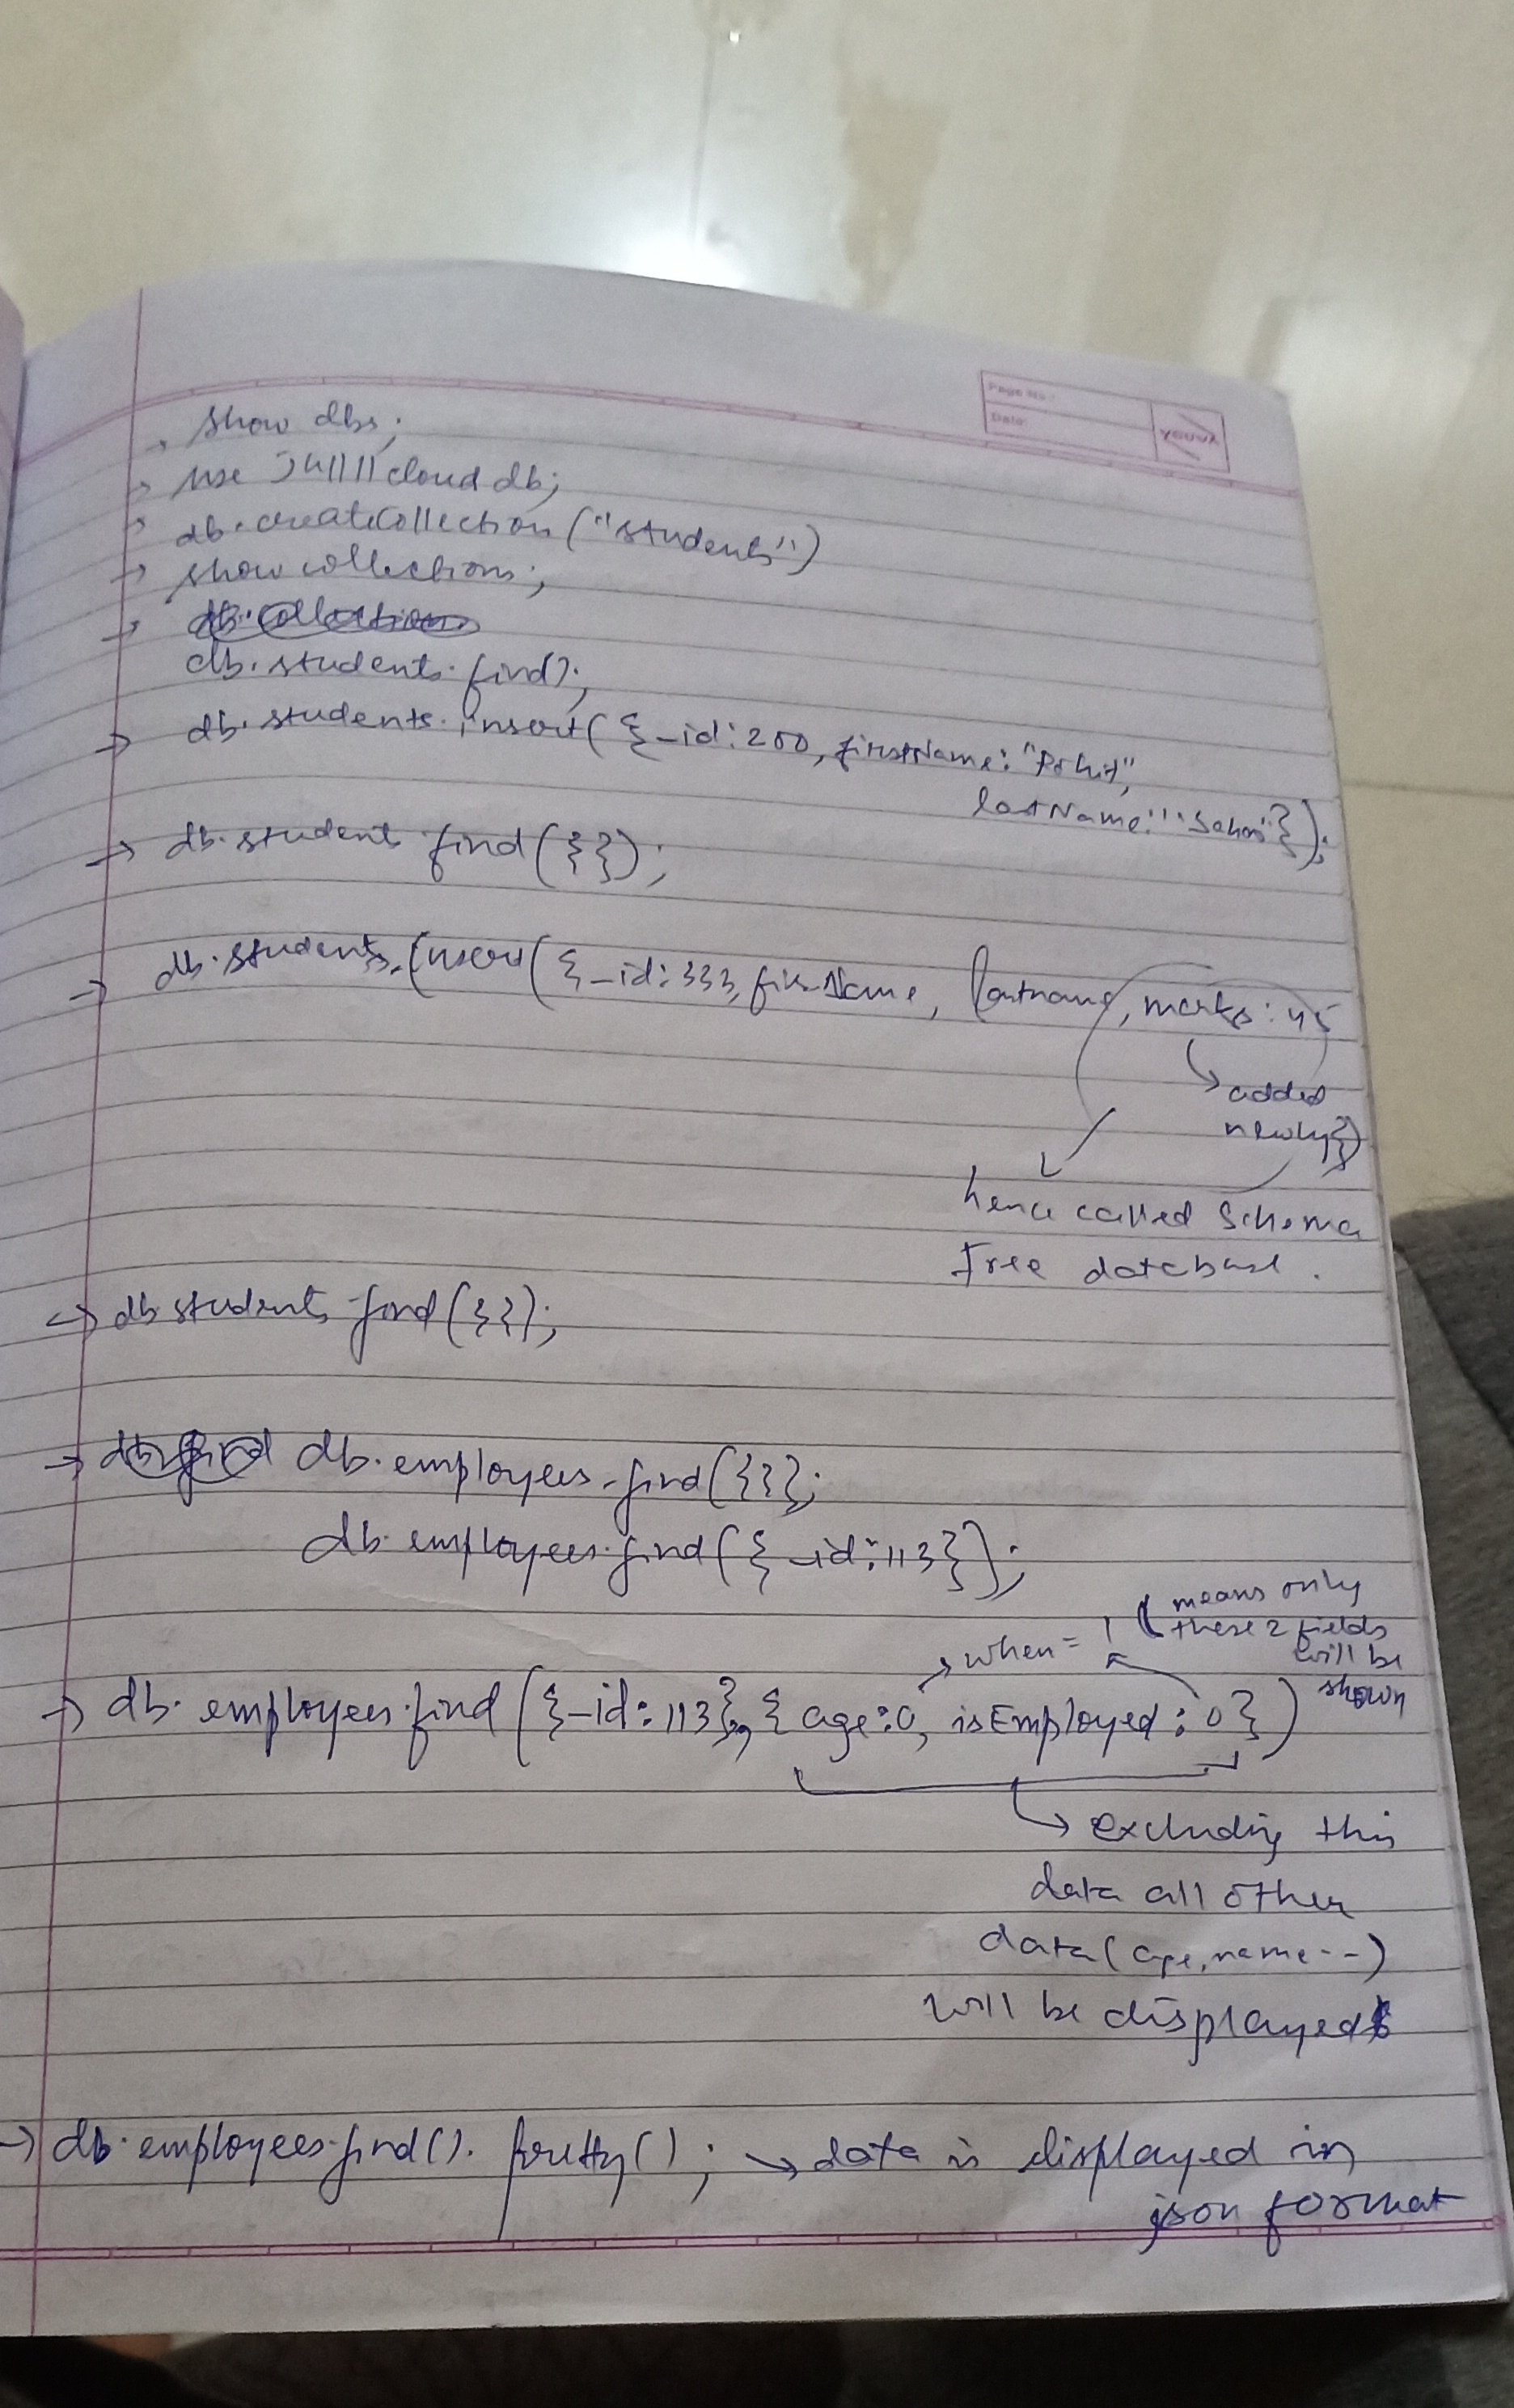 Page No.:
Date:
YOUVA
→ show dbs;
→ use clouddb;
→ db.createCollection("students")
→ show collections;
→ db.collection
db.students.find);
→ db.students.insert({_id:200, firstName:"Rohit",
lastName:" "});
→ db.students.find({});
→ db.students.insert({_id:333, firstName, lastname, marks:45
↳ added
newly})
hence called Schema
free database.
→ db students find({});
→ db.find db.employees.find({}};
db.employees.find({_id:113});
means only
→ when = 1 ( these 2 fields
will be
shown
→ db.employees.find({_id:113}, { age:0, isEmployed:0})
↳ excluding this
data all other
data (age, name--)
will be displayed
→ db.employees.find().pretty(); → data is displayed in
json format